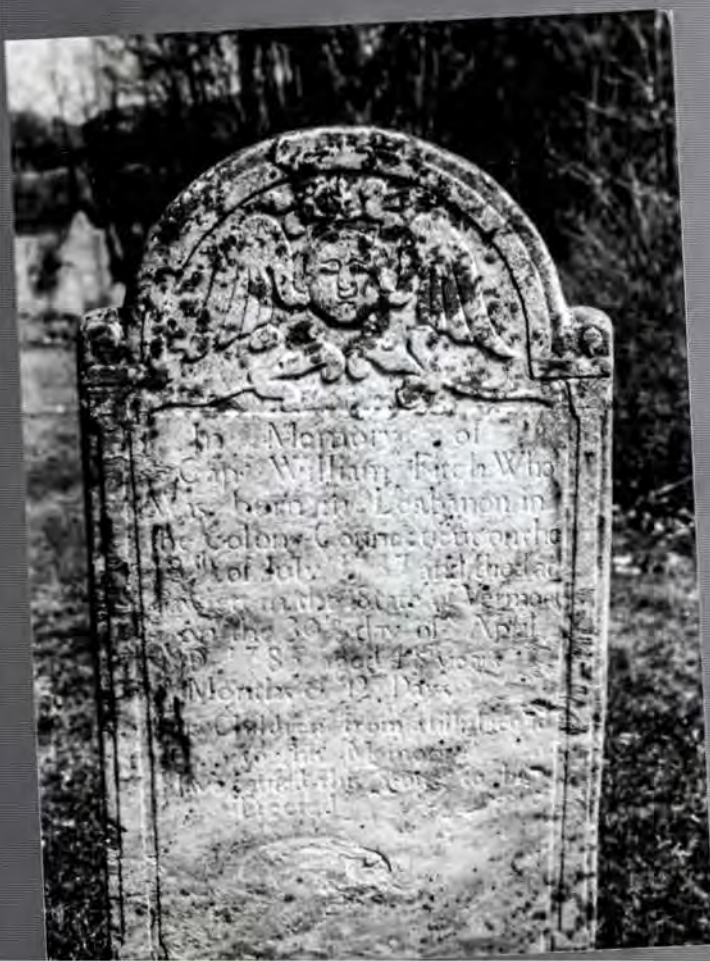 In Memory of
Capt William Fitch Who
Was born in Leabanon in
the Colony Connecticut on the
of July and
in the State of Vermont
on the 30th day of April
AD 178 aged 48 years
Months & 12 Days
Children from
to his Memory
this to be
Erected